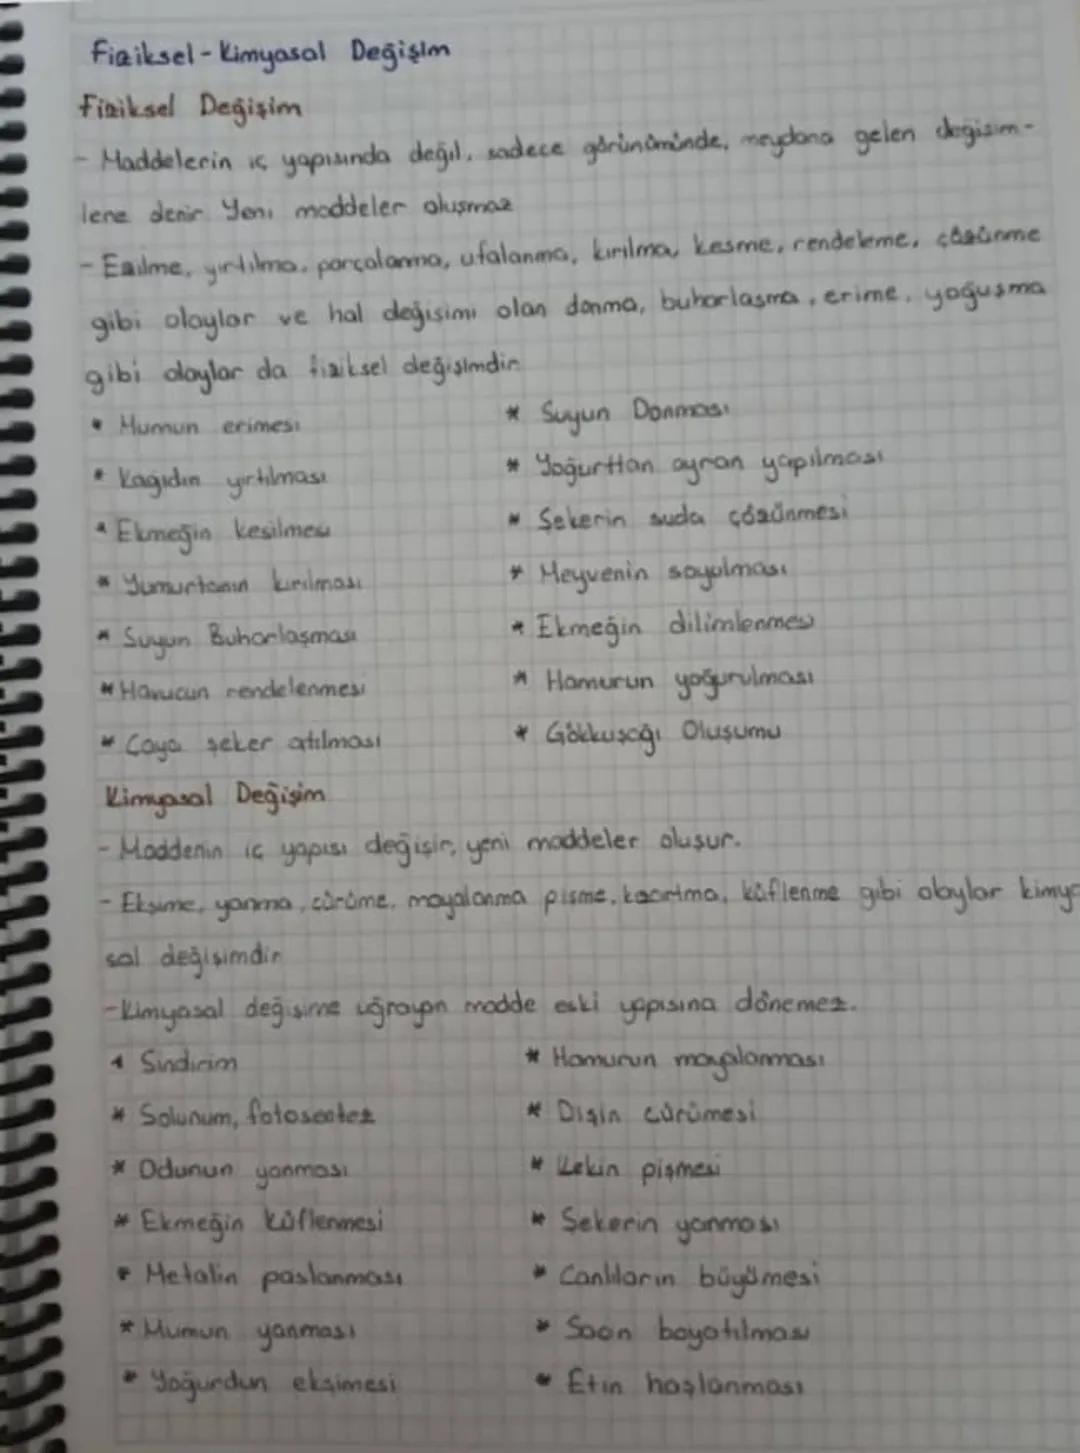 Fiziksel-Kimyasal Değişim
Fiziksel Değişim
- Maddelerin iç yapısında değil, sadece görünümünde, meydana gelen değişim-
lere denir Yeni maddeler oluşmaz
- Ezilme, yırtılma, parçalanma, ufalanma, kırılma, kesme, rendeleme, çözünme
gibi olaylar ve hal değişimi olan donma, buharlaşma, erime, yoğuşma
gibi olaylar da fiziksel değişimdir
* Mumun erimesi
* Suyun Donması
* Kağıdın yırtılması
* Yoğurttan ayran yapılması
* Ekmeğin kesilmesi
* Şekerin suda çözünmesi
* Yumurtanın kırılması
* Meyvenin soyulması
* Suyun Buharlaşması
* Ekmeğin dilimlenmesi
* Havucun rendelenmesi
* Hamurun yoğurulması
* Çaya şeker atılması
* Gökkuşağı Oluşumu
Kimyasal Değişim
- Maddenin iç yapısı değişir, yeni maddeler oluşur.
- Ekşime, yanma, çürüme, mayalanma pişme, kızartma, küflenme gibi olaylar kimya
sal değişimdir
- Kimyasal değişime uğrayan madde eski yapısına dönemez.
* Sindirim
* Hamurun mayalanması
* Solunum, fotosentez
* Dişin çürümesi
* Odunun yanması
* Kekin pişmesi
* Ekmeğin küflenmesi
* Şekerin yanması
* Metalin paslanması
* Canlıların büyümesi
* Mumun yanması
* Saçın boyatılması
* Yoğurdun ekşimesi
* Etin haşlanması